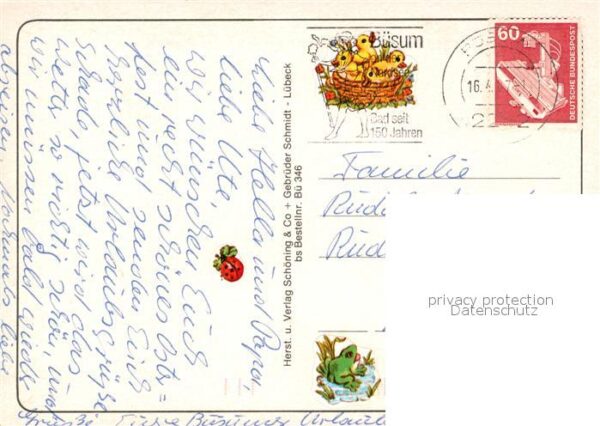 Liebe Hella und Papa,
liebe Ute,
Wir wünschen Euch
ein recht schönes Oster=
fest und senden Euch
herzliche Urlaubsgrüße
schade, jetzt wird das
Wetter so richtig schön, und
wir müssen bald wieder
abreisen. Nochmals liebe
Grüße Eure Büsumer Urlaub
Herst. u. Verlag Schöning & Co + Gebrüder Schmidt - Lübeck
bs Bestellnr. Bü 346
Büsum
Bad seit
150 Jahren
POS
16.
60
DEUTSCHE BUNDESPOST
Familie
privacy protection
Datenschutz